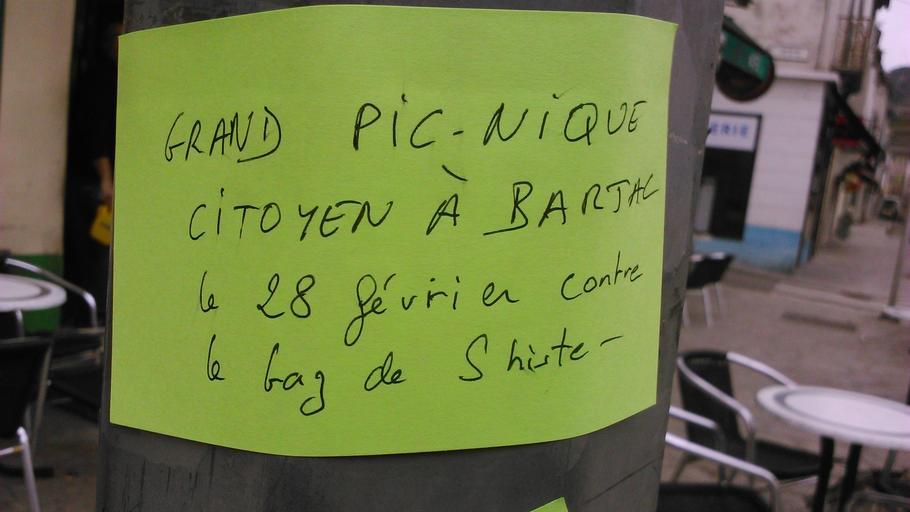 GRAND PIC-NIQUE
CITOYEN À BARJAC
le 28 février contre
le gaz de Shiste-
ERIE